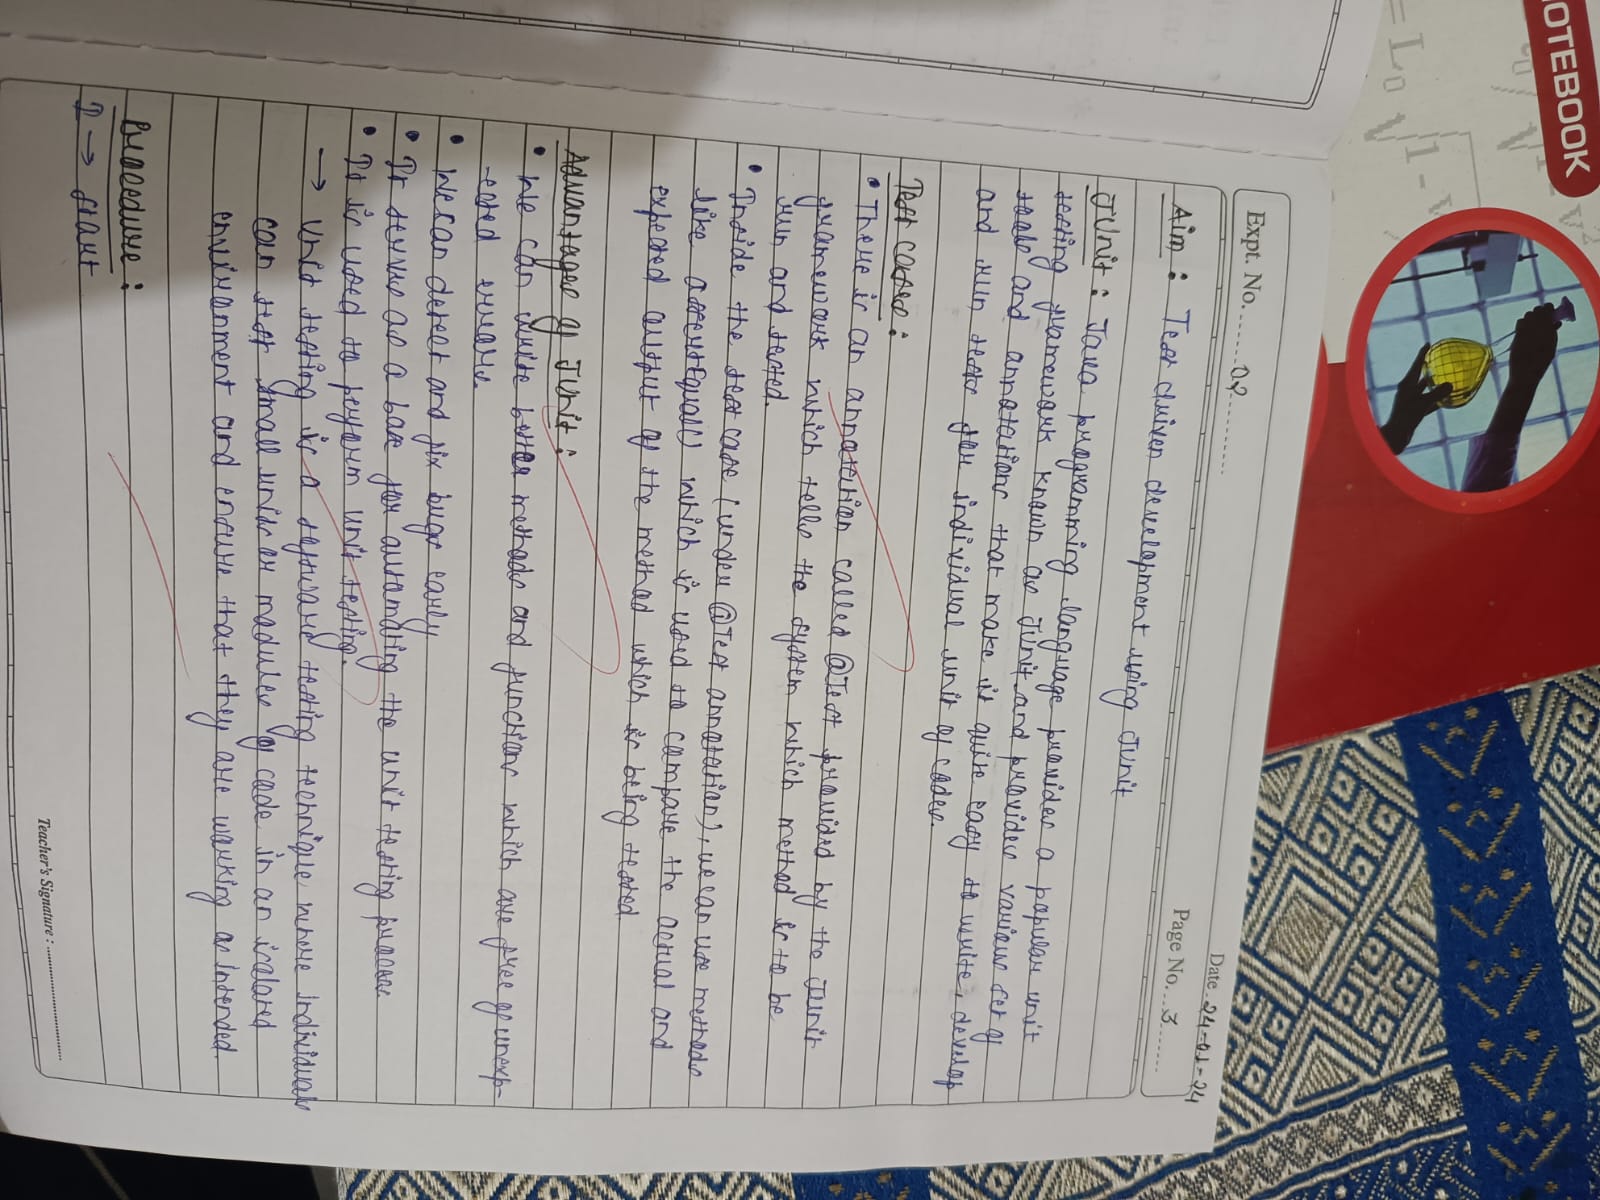 Expt. No. 02
Date 24-01-24
Page No. 3
Aim : Test driven development using Junit
JUnit : Java programming language provides a popular unit
testing framework known as Junit and provides various set of
tools and annotations that make it quite easy to write, develop
and run tests for individual unit of codes.
Test cases :
• There is an annotation called @Test provided by the Junit
framework which tells the system which method is to be
run and tested.
• Inside the test case (under @Test annotation), we can use methods
like assertEquals() which is used to compare the actual and
expected output of the method which is being tested
Advantages of JUnit :
• We can write better methods and functions which are free of unexp-
-ected errors.
• We can detect and fix bugs early
• It serves as a base for automating the unit testing process
• It is used to perform unit testing.
→ Unit testing is a software testing technique where individuals
can test small units or modules of code in an isolated
environment and ensure that they are working as intended.
Procedure :
I → start
Teacher's Signature :
NOTEBOOK